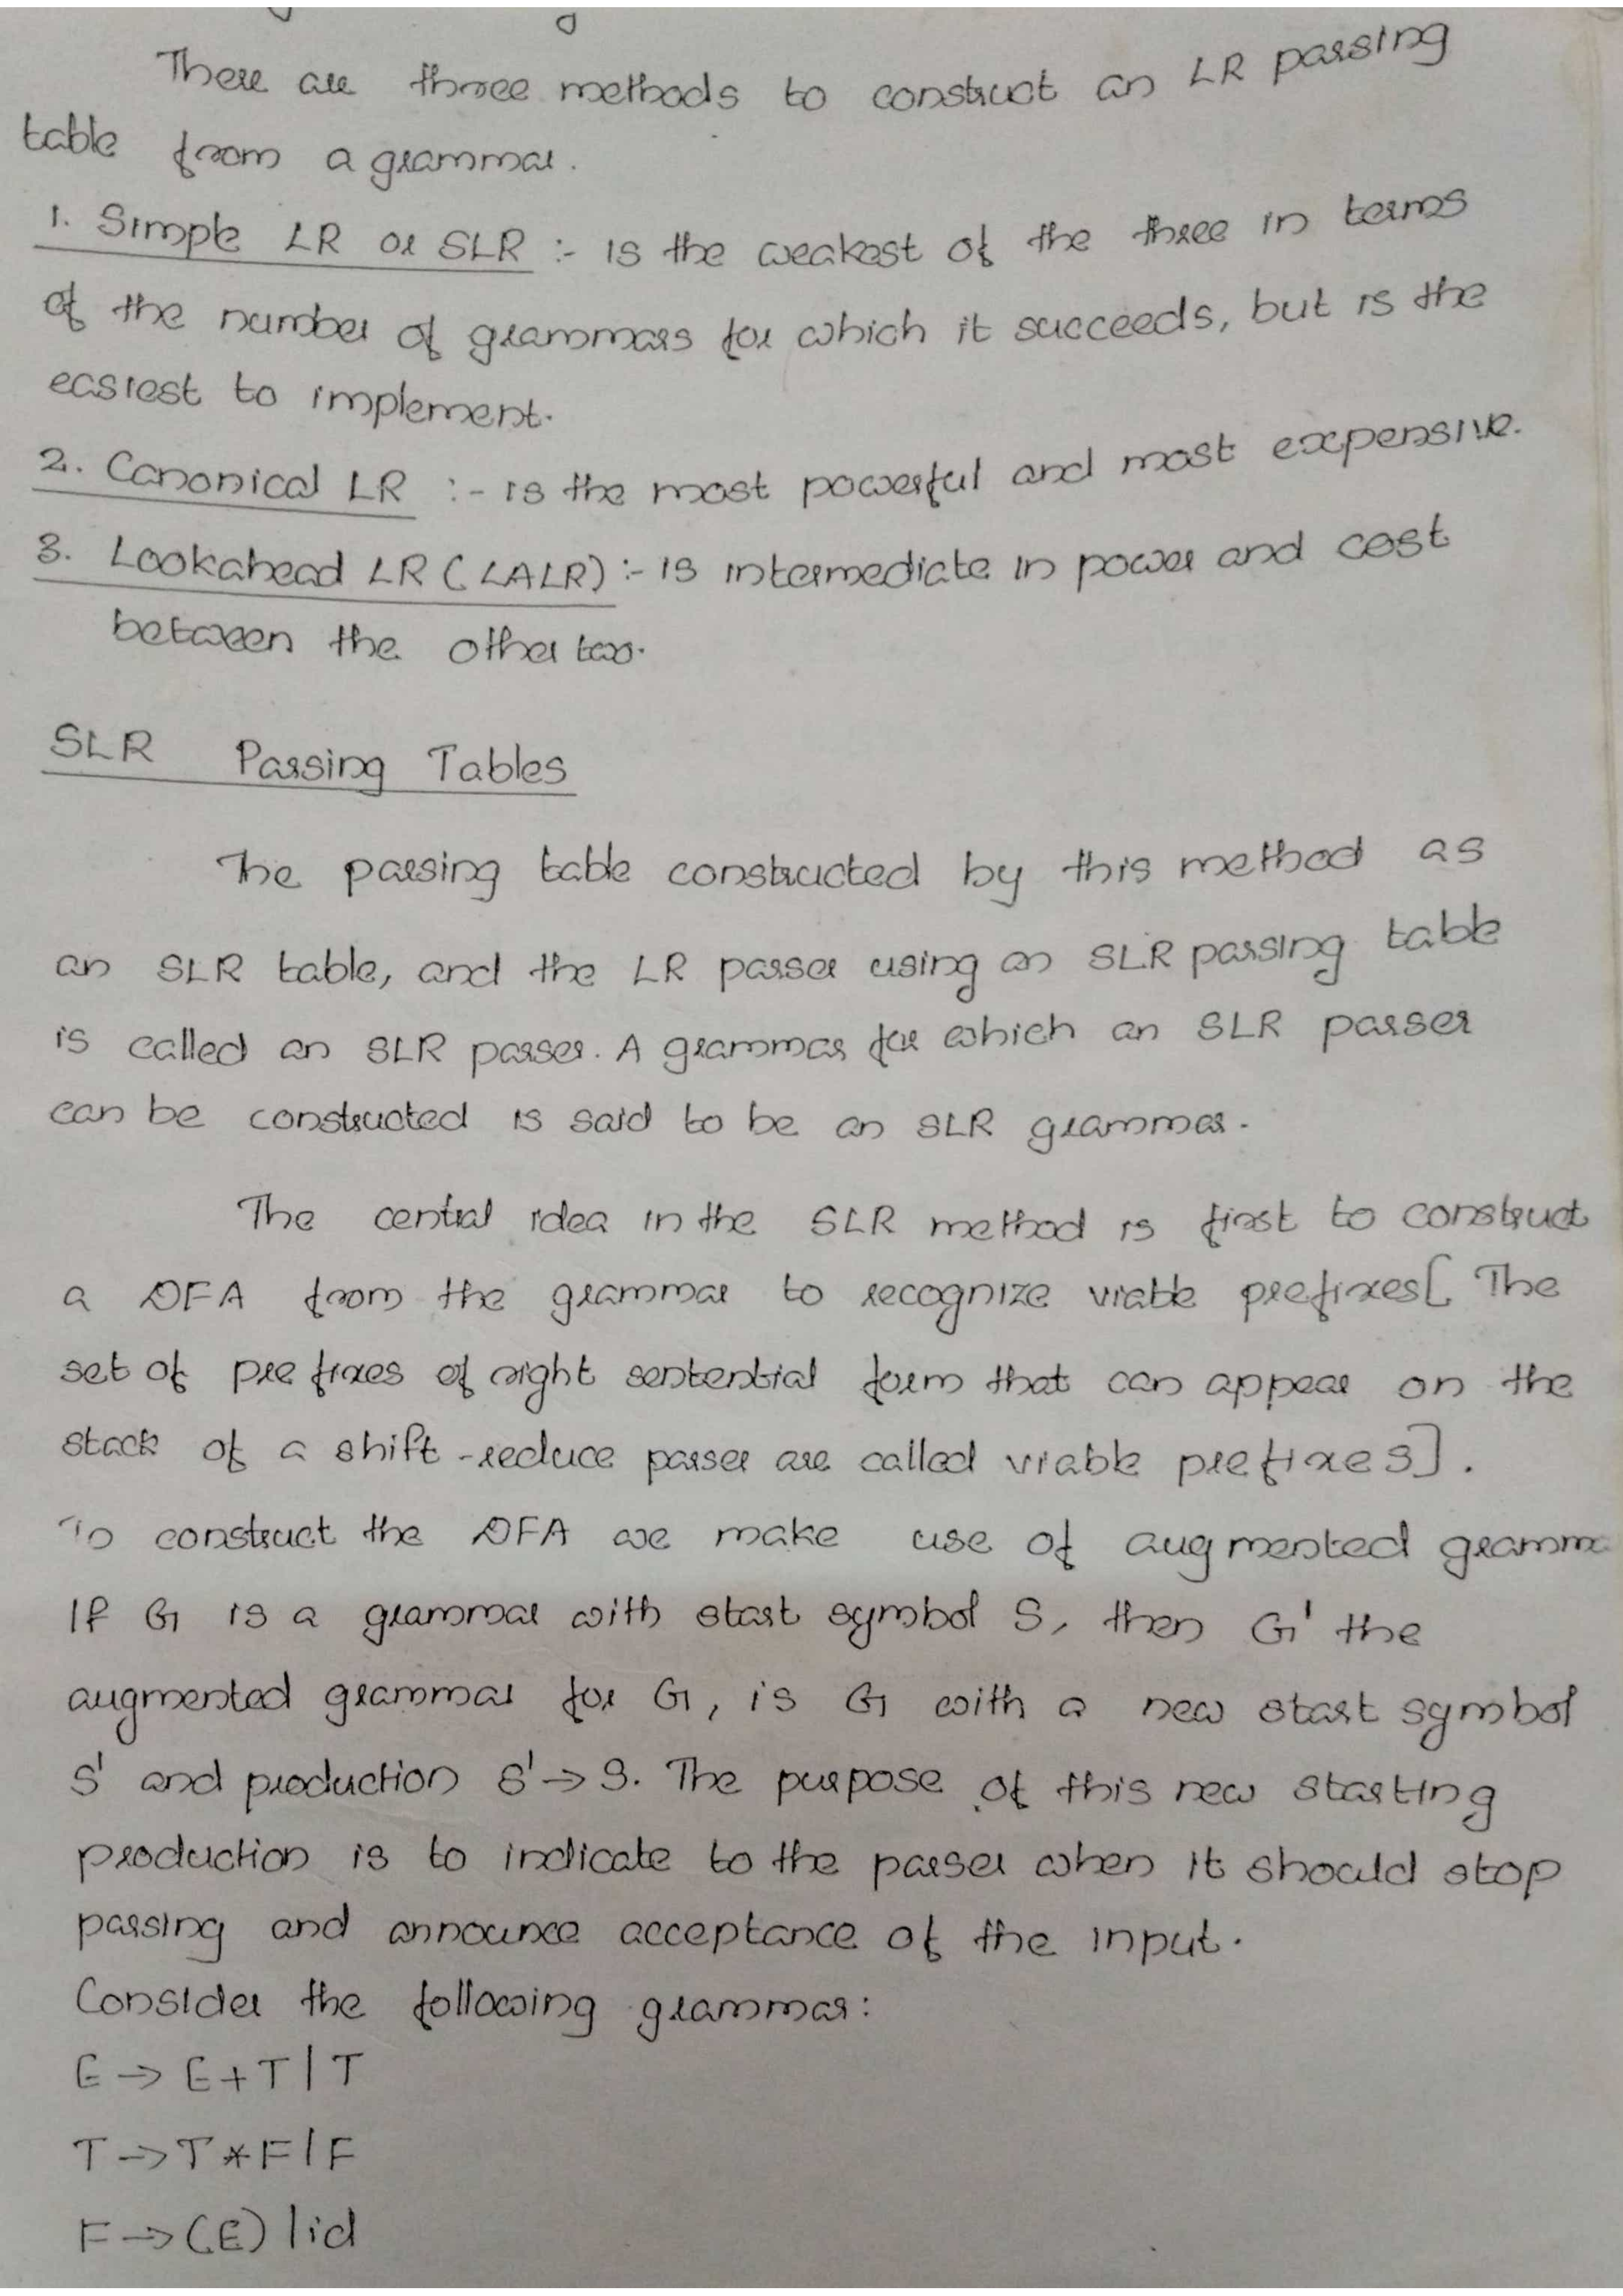 There are three methods to construct an LR parsing
table from a grammar.
1. Simple LR or SLR :- is the weakest of the three in terms
of the number of grammars for which it succeeds, but is the
easiest to implement.
2. Canonical LR :- is the most powerful and most expensive.
3. Lookahead LR (LALR) :- is intermediate in power and cost
between the other two.
SLR Parsing Tables
The parsing table constructed by this method as
an SLR table, and the LR parser using an SLR parsing table
is called an SLR parser. A grammar for which an SLR parser
can be constructed is said to be an SLR grammar.
The central idea in the SLR method is first to construct
a DFA from the grammar to recognize viable prefixes[ The
set of prefixes of right sentential form that can appear on the
stack of a shift-reduce parser are called viable prefixes].
To construct the DFA we make use of augmented gramma
If G is a grammar with start symbol S, then G' the
augmented grammar for G, is G with a new start symbol
S' and production S' → S. The purpose of this new starting
production is to indicate to the parser when it should stop
parsing and announce acceptance of the input.
Consider the following grammar:
E → E+T | T
T → T*F | F
F → (E) | id